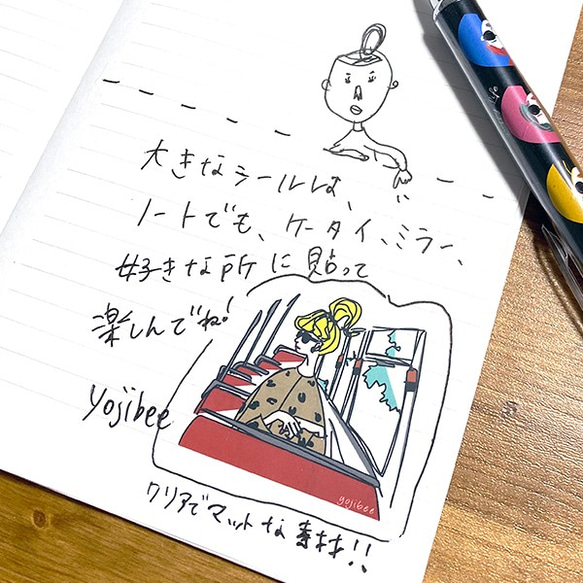 大きなシールは、
ノートでも、ケータイ、ミラー、
好きな所に貼って
楽しんでね!
yojibee
yojibee
クリアでマットな素材!!
life